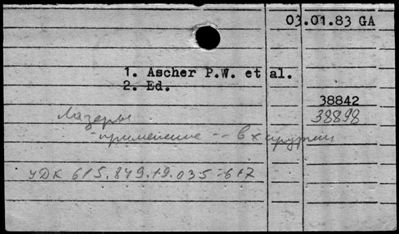 03.01.83 GA
1. Ascher P.W. et al.
2. Ed.
38842
Лазеры 38898
- применение -- в хирургии
УДК 615.849.19.035:617